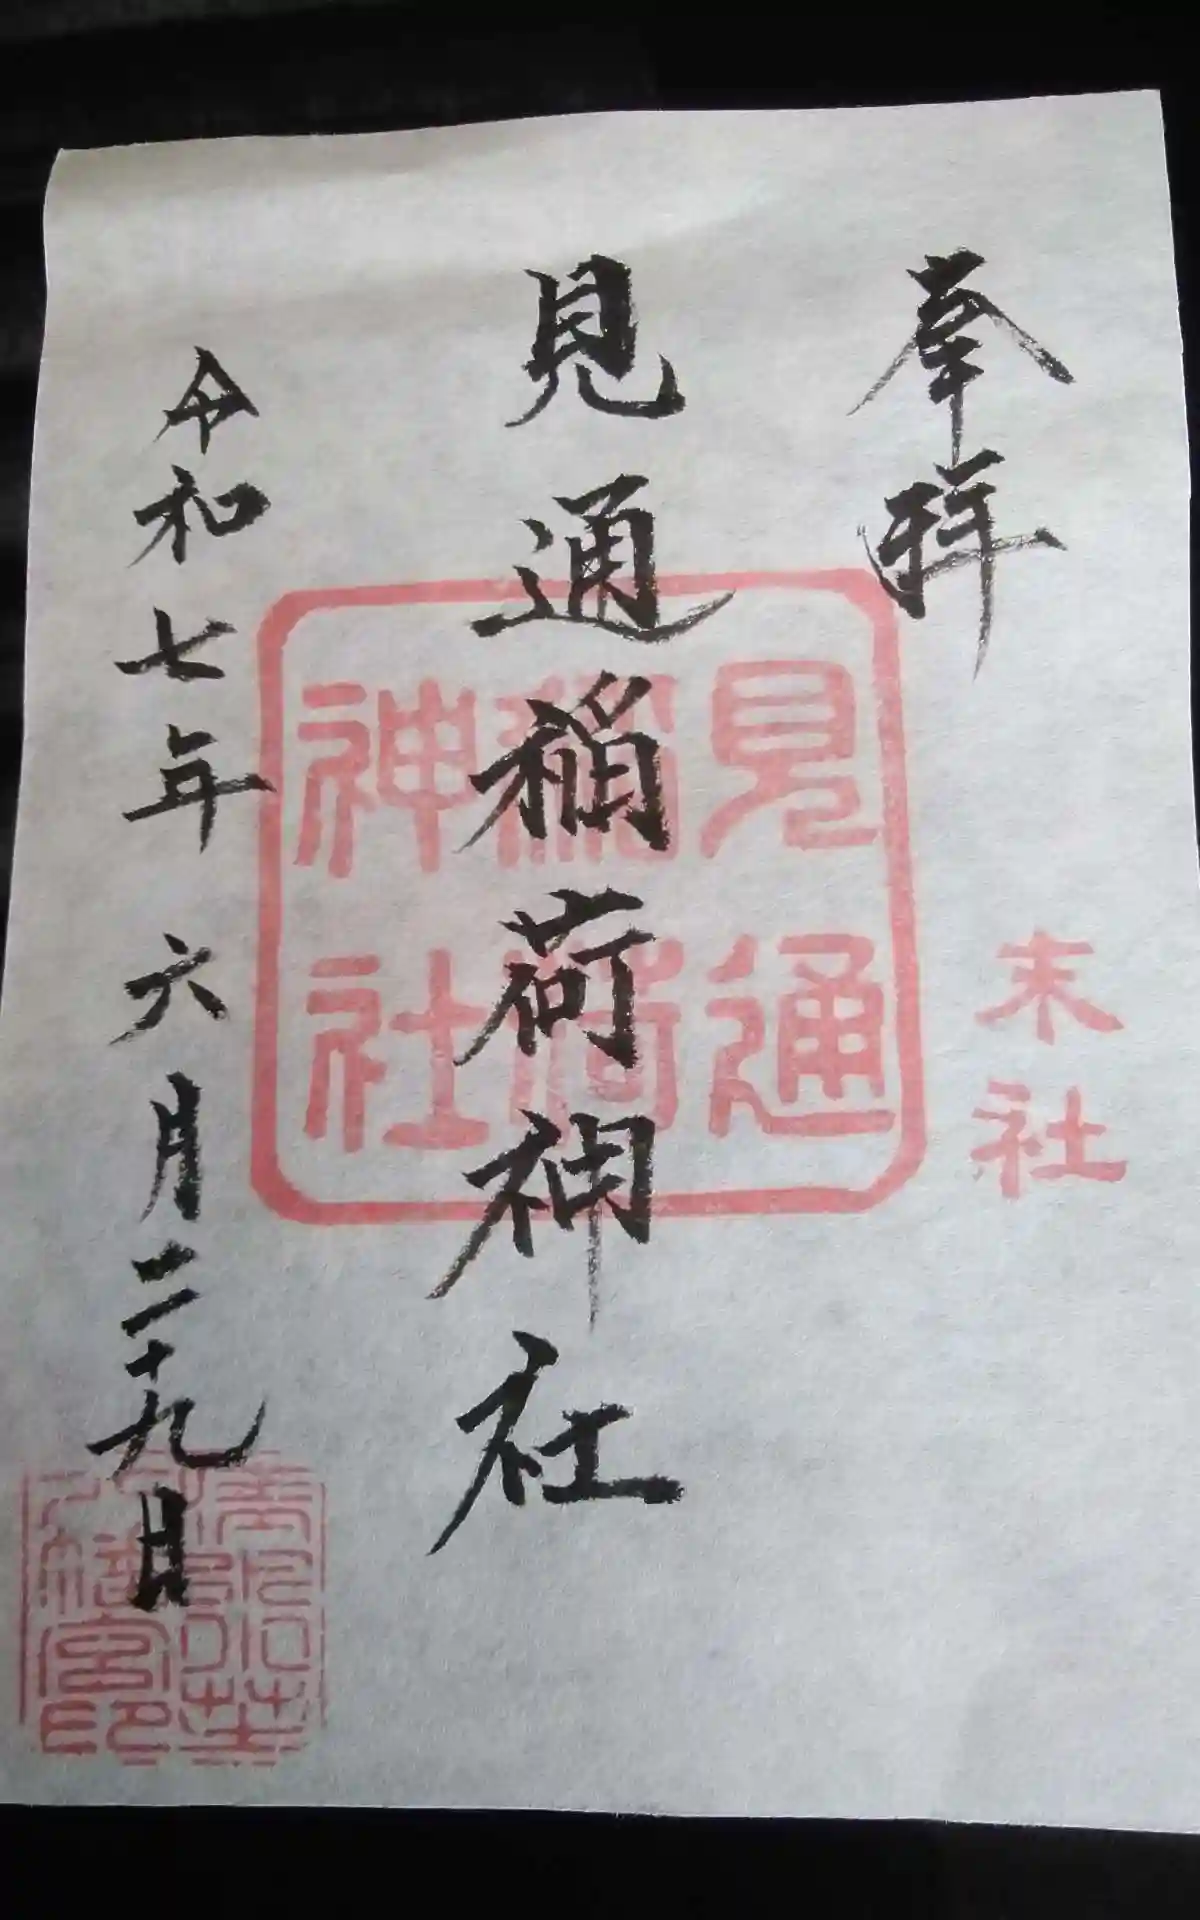 奉拝
末社
見通稲荷神社
見通
稲荷
神社
令和七年六月二十九日
八幡宮印